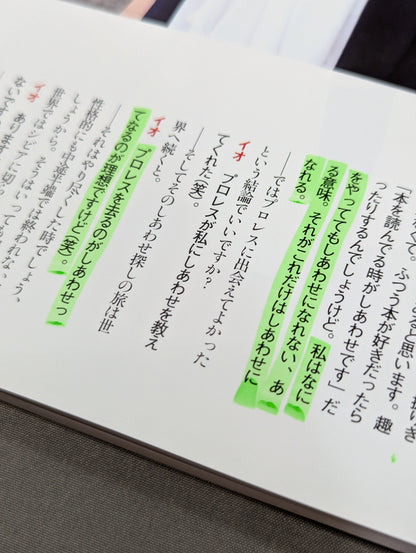 と思います。 趣
かで。ふつう本が好きだったら
「本を読んでる時がしあわせです」だ
ったりするんでしょうけど。 私はなに
をやっててもしあわせになれない、あ
る意味。それがこれだけはしあわせに
なれる。
――ではプロレスに出会えてよかった
という結論でいいですか？
イオ プロレスが私にしあわせを教え
てくれた（笑）。
――そしてそのしあわせ探しの旅は世
界へ続くと。
イオ プロレスを去るのがしあわせっ
てなるのが理想ですけど（笑）。
――それはやり尽くした時でしょう、
性格的にも中途半端では終われな
しょうから。
イオ そうはいっても
世界ではシビアに切
ない